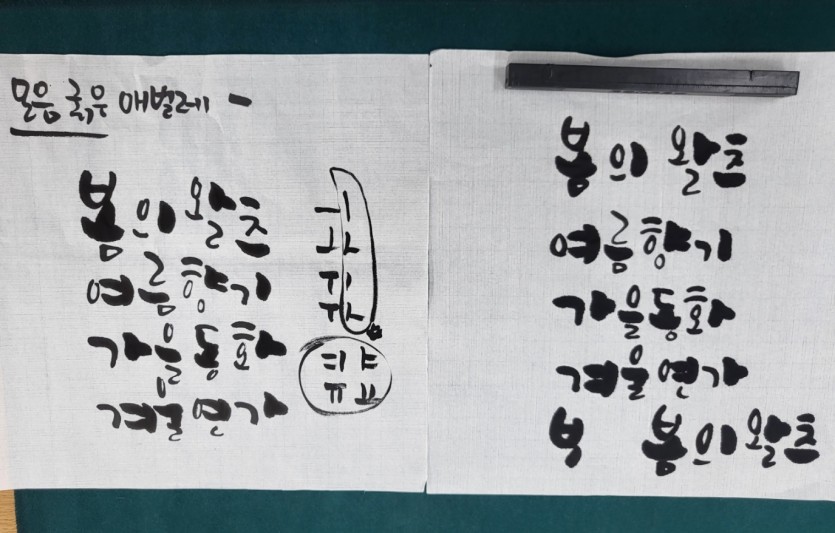 모음 굵은 애벌레 -
봄의 왈츠
여름향기
가을동화
겨울연가
ㅢ
ㅘ
ㅟ
ㅝ
ㅕㅑ
ㅠㅛ
봄의 왈츠
여름향기
가을동화
겨울연가
북 봄의 왈츠